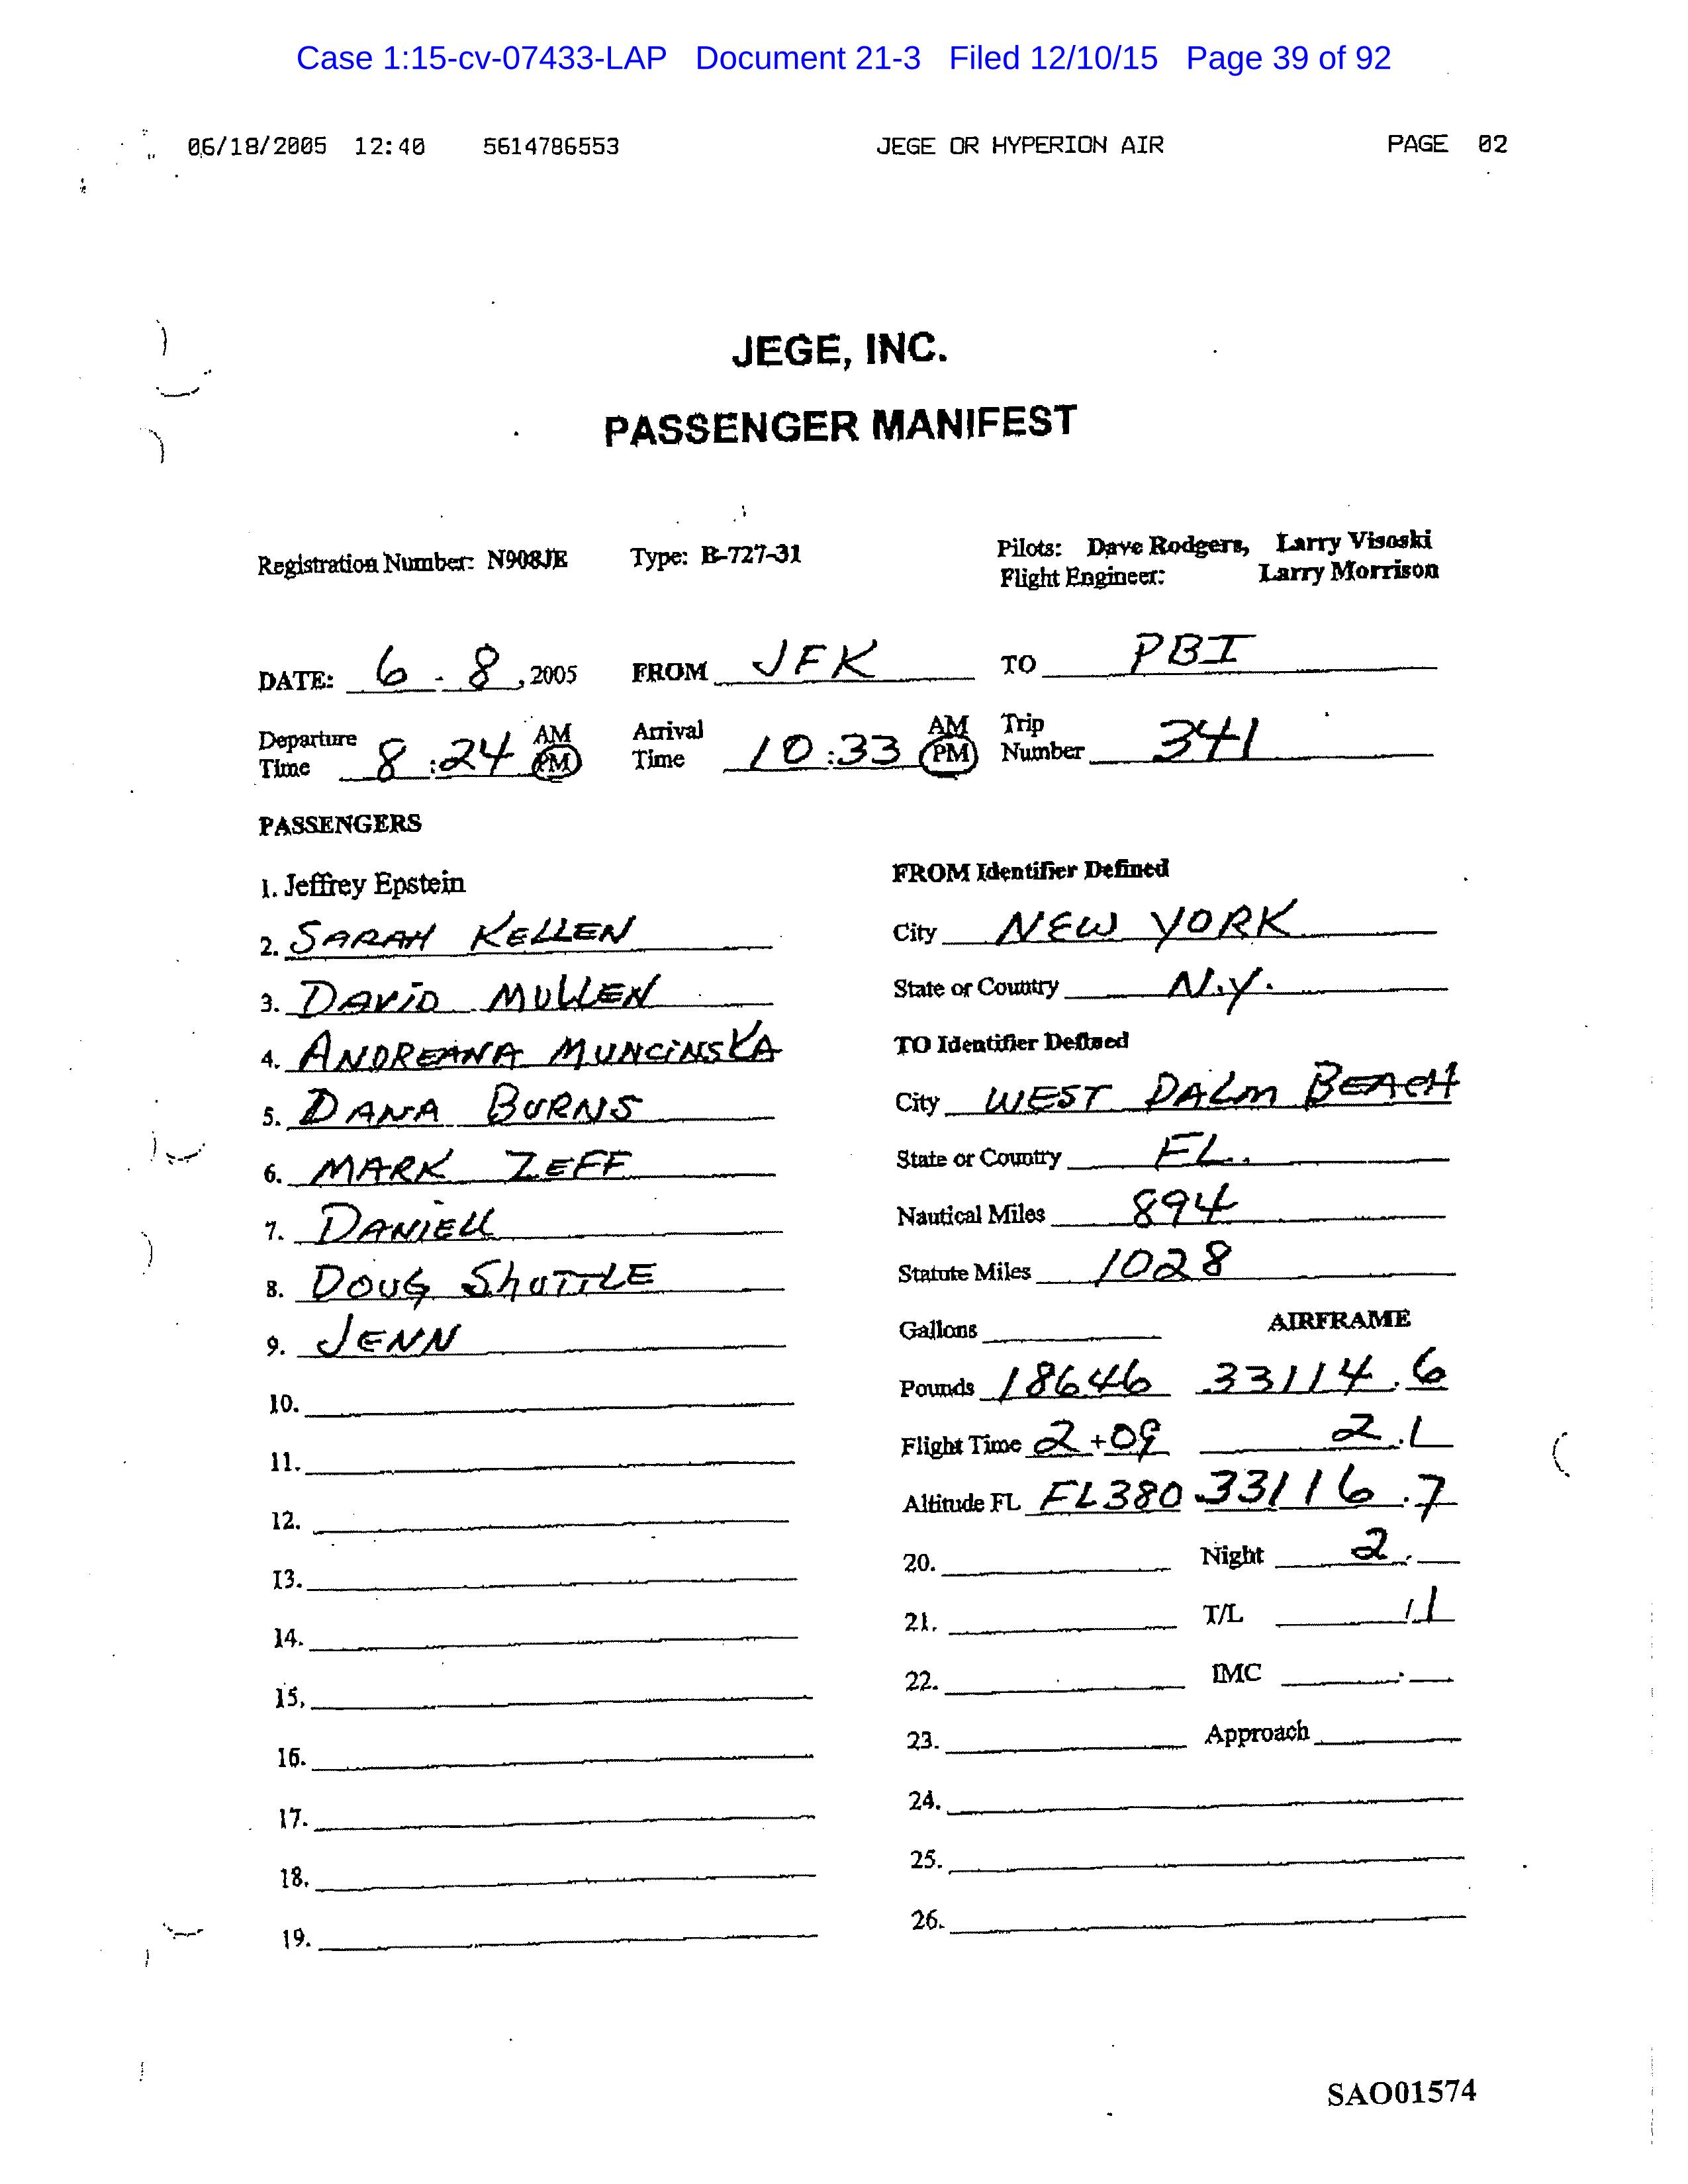 Case 1:15-cv-07433-LAP Document 21-3 Filed 12/10/15 Page 39 of 92
06/18/2005 12:40 5614786553 JEGE OR HYPERION AIR PAGE 02
JEGE, INC.
PASSENGER MANIFEST
Registration Number: N908JE Type: B-727-31 Pilots: Dave Rodgers, Larry Visoski
Flight Engineer: Larry Morrison
DATE: 6 - 8, 2005 FROM JFK TO PBI
Departure Time 8:24 AM PM Arrival Time 10:33 AM PM Trip Number 341
PASSENGERS
1. Jeffrey Epstein
2. SARAH KELLEN
3. DAVID MULLEN
4. ANDREANA MUNCINSKA
5. DANA BURNS
6. MARK ZEFF
7. DANIELL
8. DOUG ShUTTLE
9. JENN
10.
11.
12.
13.
14.
15.
16.
17.
18.
19.
FROM Identifier Defined
City NEW YORK
State or Country N.Y.
TO Identifier Defined
City WEST PALM BEACH
State or Country FL.
Nautical Miles 894
Statute Miles 1028
Gallons AIRFRAME
Pounds 18646 33114.6
Flight Time 2+09 2.1
Altitude FL FL380 33116.7
20. Night 2.
21. T/L 1/1
22. IMC
23. Approach
24.
25.
26.
SAO01574